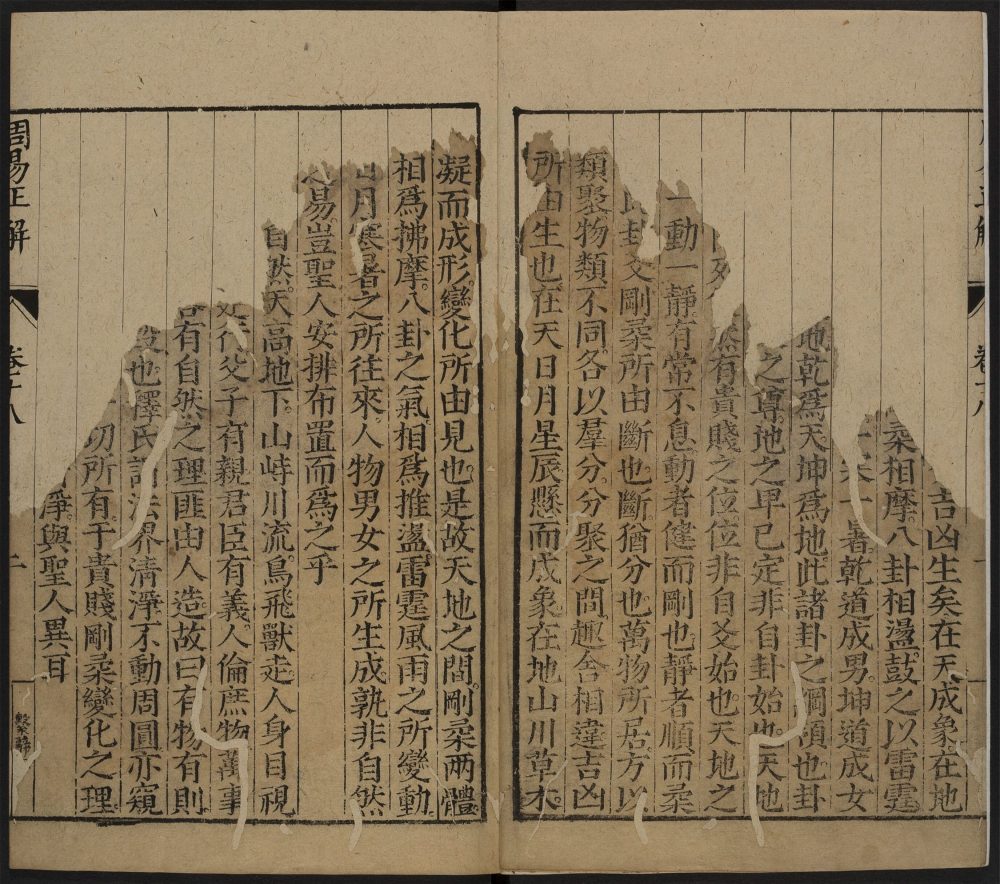 吉凶生矣在天成象在地
柔相摩。八卦相盪。鼓之以雷霆
一寒一暑。乾道成男。坤道成女
地。乾爲天坤爲地。此諸卦之綱領也。卦
之尊地之卑已定。非自卦始也。天地
有貴賤之位。位非自爻始也。天地之
一動一靜。有常不息。動者健而剛也。靜者順。而柔
卦爻剛柔所由斷也。斷猶分也。萬物所居。方以
類聚。物類不同。各以羣分。分聚之間。趣舍相違。吉凶
所由生也。在天日月星辰。懸而成象。在地山川草木。
凝而成形。變化所由見也。是故天地之間。剛柔兩體
相爲拂摩。八卦之氣。相爲推盪。雷霆風雨之所變動。
日月寒暑之所往來。人物男女之所生成。孰非自然
易。豈聖人安排布置而爲之乎
自然。天高地下。山峙川流。鳥飛獸走。人身目視
父子有親。君臣有義。人倫庶物萬事
有自然之理。匪由人造。故曰有物有則
也。釋氏謂法界清淨不動周圓。亦窺
切所有。于貴賤剛柔變化之理。
淨與聖人異耳
周易正解
卷十八
二
繫辭